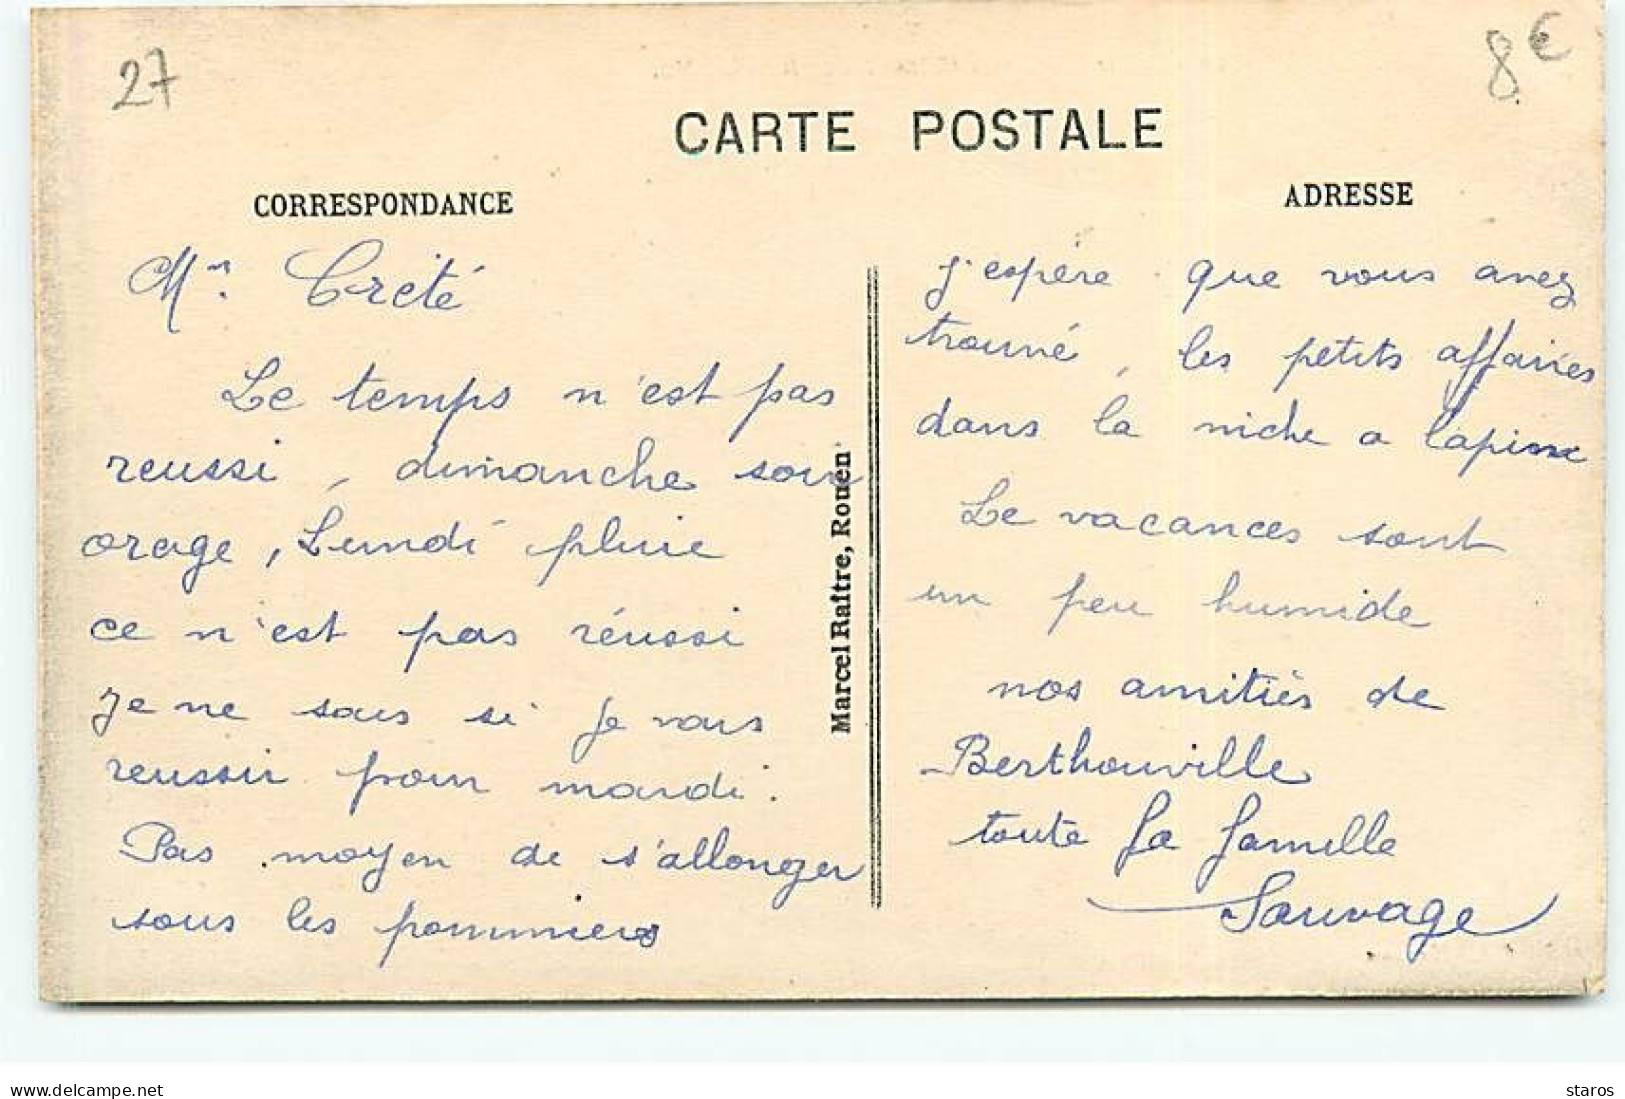 27
8€
CARTE POSTALE
CORRESPONDANCE
ADRESSE
Mr. Creté
Le temps n'est pas
reussi, dimanche soir
orage, Lundi pluie
ce n'est pas réussi
je ne sais si je vais
reussir pour mardi.
Pas moyen de s'allonger
sous les pommiers
Marcel Raître, Rouen
j'espère que vous avez
trouvé, les petits affaires
dans la niche a lapins
Le vacances sont
un peu humide
nos amitiés de
Berthouville
toute la famille
Sauvage
www.delcampe.net
staros